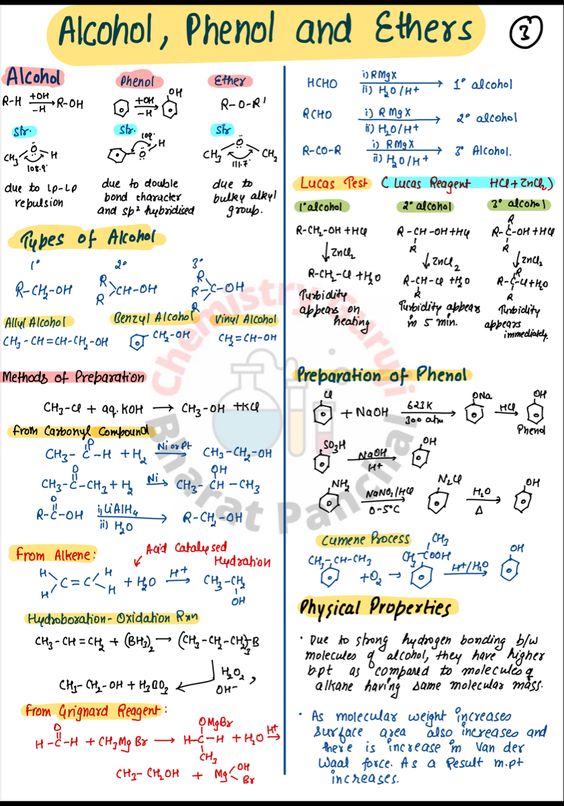 Alcohol, Phenol and Ethers
3
Alcohol
Phenol
Ether
R-H +OH → -H R-OH
+OH → -H OH
R-O-R'
Str.
Str.
Str
CH₃ O H 108.9°
109° O H
CH₃ O CH₃ 111.7°
due to lp-lp
repulsion
due to double
bond character
and sp² hybridised
due to
bulky alkyl
group.
Types of Alcohol
1° 2° 3°
R-CH₂-OH
R R >CH-OH
R R R C-OH
Allyl Alcohol
Benzyl Alcohol
Vinyl Alcohol
CH₃-CH=CH-CH₂-OH
CH₂-OH
CH₂=CH-OH
Methods of Preparation
CH₃-Cl + aq. KOH → CH₃-OH + KCl
from Carbonyl Compound
CH₃-C(=O)-H + H₂ Ni or Pt → CH₃-CH₂-OH
CH₃-C(=O)-CH₃ + H₂ Ni → CH₃-CH(OH)-CH₃
R-C(=O)-OH i) LiAlH₄ ii) H₂O → R-CH₂-OH
From Alkene:
Acid Catalysed
Hydration
H H C=C H H + H₂O H⁺ → CH₃-CH₂ OH
Hydroboration-Oxidation Rxn
CH₃-CH=CH₂ + (BH₃)₂ → (CH₃-CH₂-CH₂)₃B
H₂O₂,
OH⁻
CH₃-CH₂-OH + H₃BO₂
From Grignard Reagent:
H-C(=O)-H + CH₃MgBr → H-C(OMgBr)(CH₃)-H + H₂O H⁺ →
CH₃-CH₂OH + Mg OH Br
HCHO i) RMgX ii) H₂O/H⁺ → 1° alcohol
RCHO i) RMgX ii) H₂O/H⁺ → 2° alcohol
R-CO-R i) RMgX ii) H₂O/H⁺ → 3° Alcohol.
Lucas Test (Lucas Reagent HCl+ZnCl₂)
1° alcohol
2° alcohol
3° alcohol
R-CH₂-OH + HCl
↓ ZnCl₂
R-CH₂-Cl + H₂O
Turbidity
appears on
heating
R-CH-OH + HCl
R
↓ ZnCl₂
R-CH-Cl + H₂O
R
Turbidity appears
in 5 min.
R
R-C-OH + HCl
R
↓ ZnCl₂
R
R-C-Cl + H₂O
R
Turbidity
appears
immediately.
Preparation of Phenol
Cl + NaOH 623K 300 atm → ONa HCl → OH
Phenol
SO₃H NaOH H⁺ → OH
NH₂ NaNO₂/HCl 0-5°C → N₂Cl H₂O Δ → OH
Cumene Process
CH₃-CH-CH₃ + O₂ → CH₃ CH₃ COOH H⁺/H₂O → OH
Physical Properties
• Due to strong hydrogen bonding b/w
molecules of alcohol, they have higher
b.pt as compared to molecules of
alkane having same molecular mass.
• As molecular weight increases
surface area also increases and
there is increase in Van der
Waal force. As a result m.pt
increases.
Chemistry Guruji
Bharat Panchal